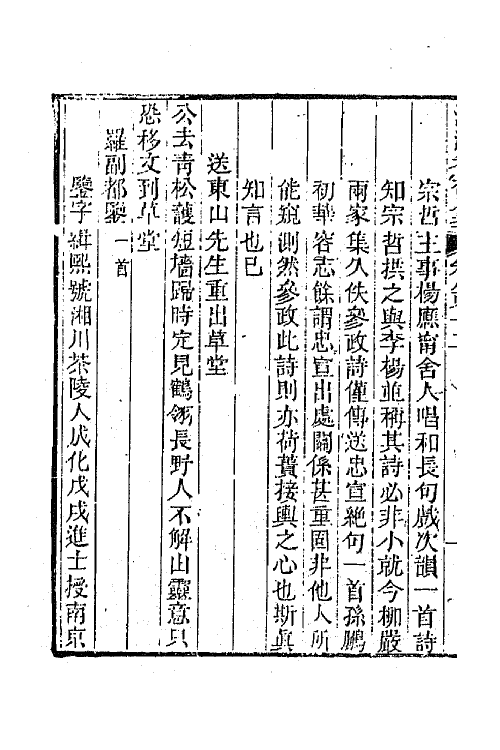 宗哲主事楊應甯舍人唱和長句戲次韻一首詩
知宗哲撰之與李楊並稱其詩必非小就今柳嚴
兩家集久佚參政詩僅傳送忠宣絶句一首孫鵬
初華容志餘謂忠宣出處關係甚重固非他人所
能窺測然參政此詩則亦荷蕢接輿之心也斯眞
知言也已
送東山先生重出草堂
公去青松護短墻歸時定見鶴翎長野人不解山靈意只
恐移文到草堂
羅副都鑒一首
鑒字緝熙號湘川茶陵人成化戊戌進士授南京